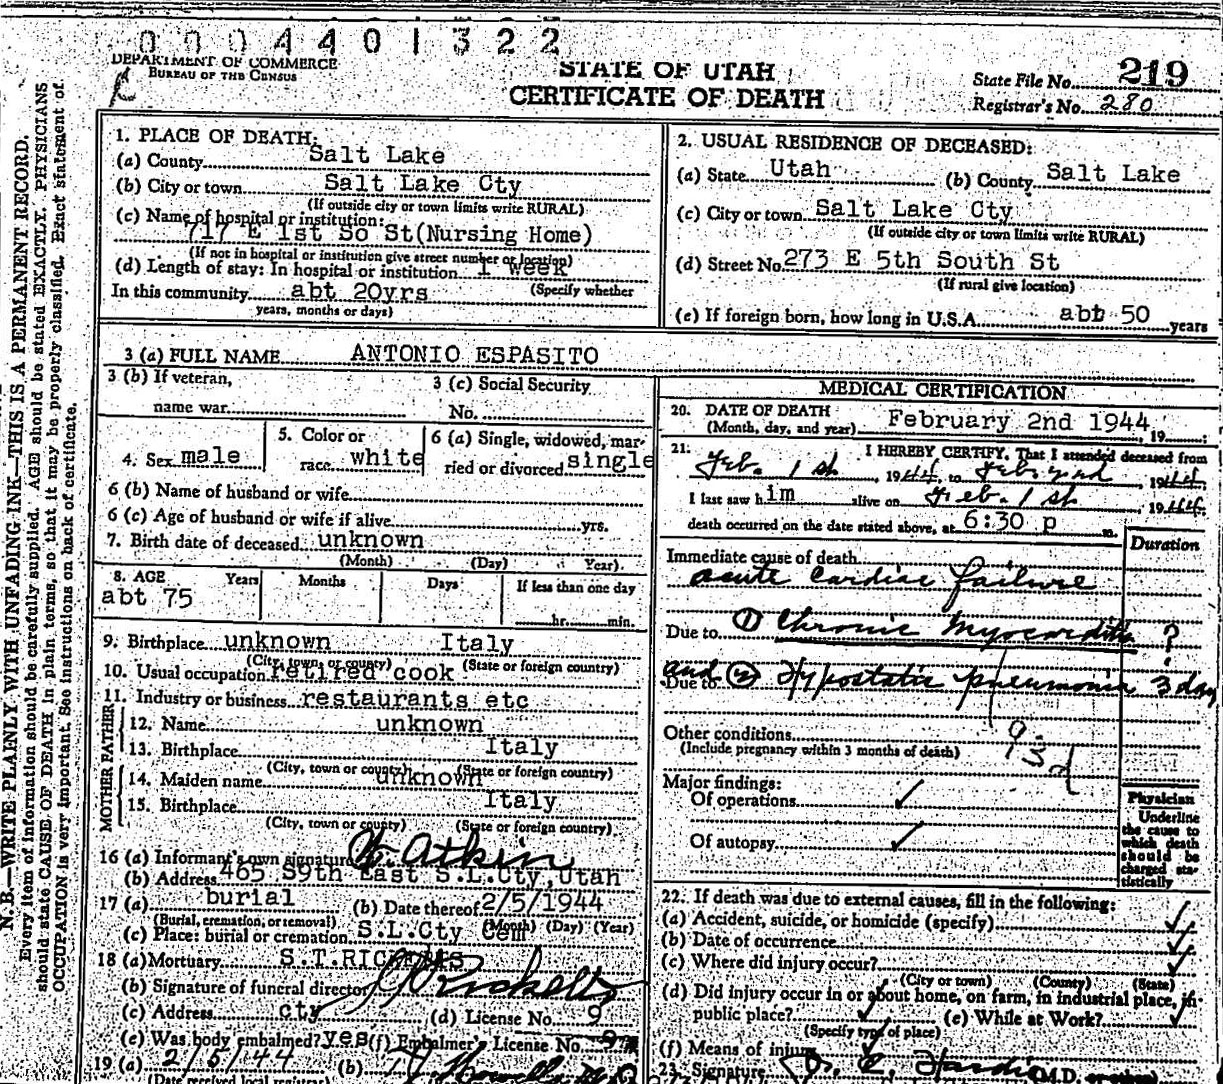 0004401322
DEPARTMENT OF COMMERCE
BUREAU OF THE CENSUS
STATE OF UTAH
CERTIFICATE OF DEATH
State File No. 219
Registrar's No. 280
N. B.—WRITE PLAINLY WITH UNFADING INK—THIS IS A PERMANENT RECORD.
Every item of information should be carefully supplied. AGE should be stated EXACTLY. PHYSICIANS
should state CAUSE OF DEATH in plain terms, so that it may be properly classified. Exact statement of
OCCUPATION is very important. See instructions on back of certificate.
1. PLACE OF DEATH:
(a) County Salt Lake
(b) City or town Salt Lake Cty
(If outside city or town limits write RURAL)
(c) Name of hospital or institution:
717 E 1st So St(Nursing Home)
(If not in hospital or institution give street number or location)
(d) Length of stay: In hospital or institution 1 week
In this community abt 20yrs (Specify whether
years, months or days)
2. USUAL RESIDENCE OF DECEASED:
(a) State Utah (b) County Salt Lake
(c) City or town Salt Lake Cty
(If outside city or town limits write RURAL)
(d) Street No. 273 E 5th South St
(If rural give location)
(e) If foreign born, how long in U.S.A. abt 50 years
3 (a) FULL NAME ANTONIO ESPASITO
3 (b) If veteran,
name war
3 (c) Social Security
No.
4. Sex male
5. Color or
race white
6 (a) Single, widowed, mar-
ried or divorced single
6 (b) Name of husband or wife
6 (c) Age of husband or wife if alive yrs.
7. Birth date of deceased unknown
(Month) (Day) Year)
8. AGE Years Months Days If less than one day
abt 75 hr. min.
9. Birthplace unknown Italy
(City, town, or county) (State or foreign country)
10. Usual occupation retired cook
11. Industry or business restaurants etc
FATHER
12. Name unknown
13. Birthplace Italy
(City, town or county) (State or foreign country)
MOTHER
14. Maiden name unknown
15. Birthplace Italy
(City, town or county) (State or foreign country)
16 (a) Informant's own signature Atkin
(b) Address 465 S9th East S.L.Cty,Utah
17 (a) burial (b) Date thereof 2/5/1944
(Burial, cremation, or removal) (Month) (Day) (Year)
(c) Place: burial or cremation S.L.Cty Cem
18 (a) Mortuary S.T.RICKETTS
(b) Signature of funeral director Ricketts
(c) Address cty (d) License No. 9
(e) Was body embalmed? yes (f) Embalmer's License No.
19 (a) 2/5/44 (b)
(Date received local registrar)
MEDICAL CERTIFICATION
20. DATE OF DEATH
(Month, day, and year) February 2nd 1944, 19
21. I HEREBY CERTIFY, That I attended deceased from
Feb. 1st, 1944, to Feb. 2nd, 1944,
I last saw him alive on Feb. 1st, 1944,
death occurred on the date stated above, at 6:30 p m.
Duration
Immediate cause of death
acute cardiac failure
Due to ① Chronic Myocarditis ?
Due to and ② Hypostatic pneumonia 3 day
93d
Other conditions
(Include pregnancy within 3 months of death)
Major findings:
Of operations
Of autopsy
Physician
Underline
the cause to
which death
should be
charged sta-
tistically
22. If death was due to external causes, fill in the following:
(a) Accident, suicide, or homicide (specify)
(b) Date of occurrence
(c) Where did injury occur?
(City or town) (County) (State)
(d) Did injury occur in or about home, on farm, in industrial place, in
public place? (e) While at Work?
(Specify type of place)
(f) Means of injury
23. Signature